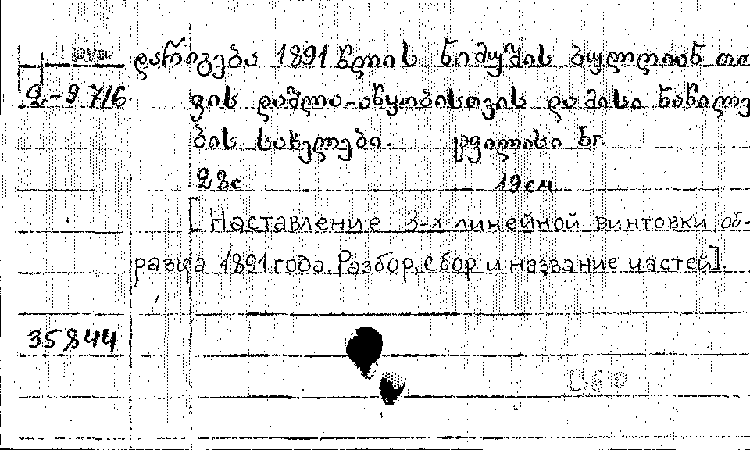 დარიგება 1891 წლის ნიმუშის
2-9716 ფის დაშლა-აწყობისთვის და მისი ნაწილე-
ბის სახელები. ტფილისი
28c 19см
[Наставление 3-х линейной винтовки об-
разца 1891 года. Разбор, сбор и название частей].
35844